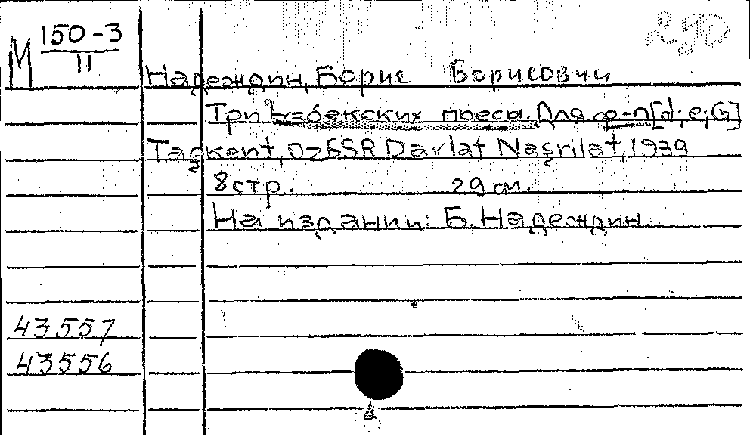 M 150-3
II
290
Надеждин, Борис Борисович
Три Узбекских пьесы. Для ф-п [d; e; G]
Taşkent, OzSSR Davlat Naşrilat, 1939
8 стр. 29 см.
На издании: Б. Надеждин
43557
43556